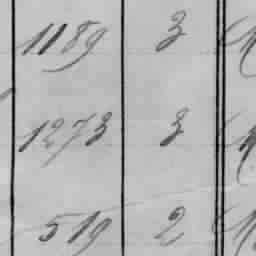 1189 3
1273 3
519 2